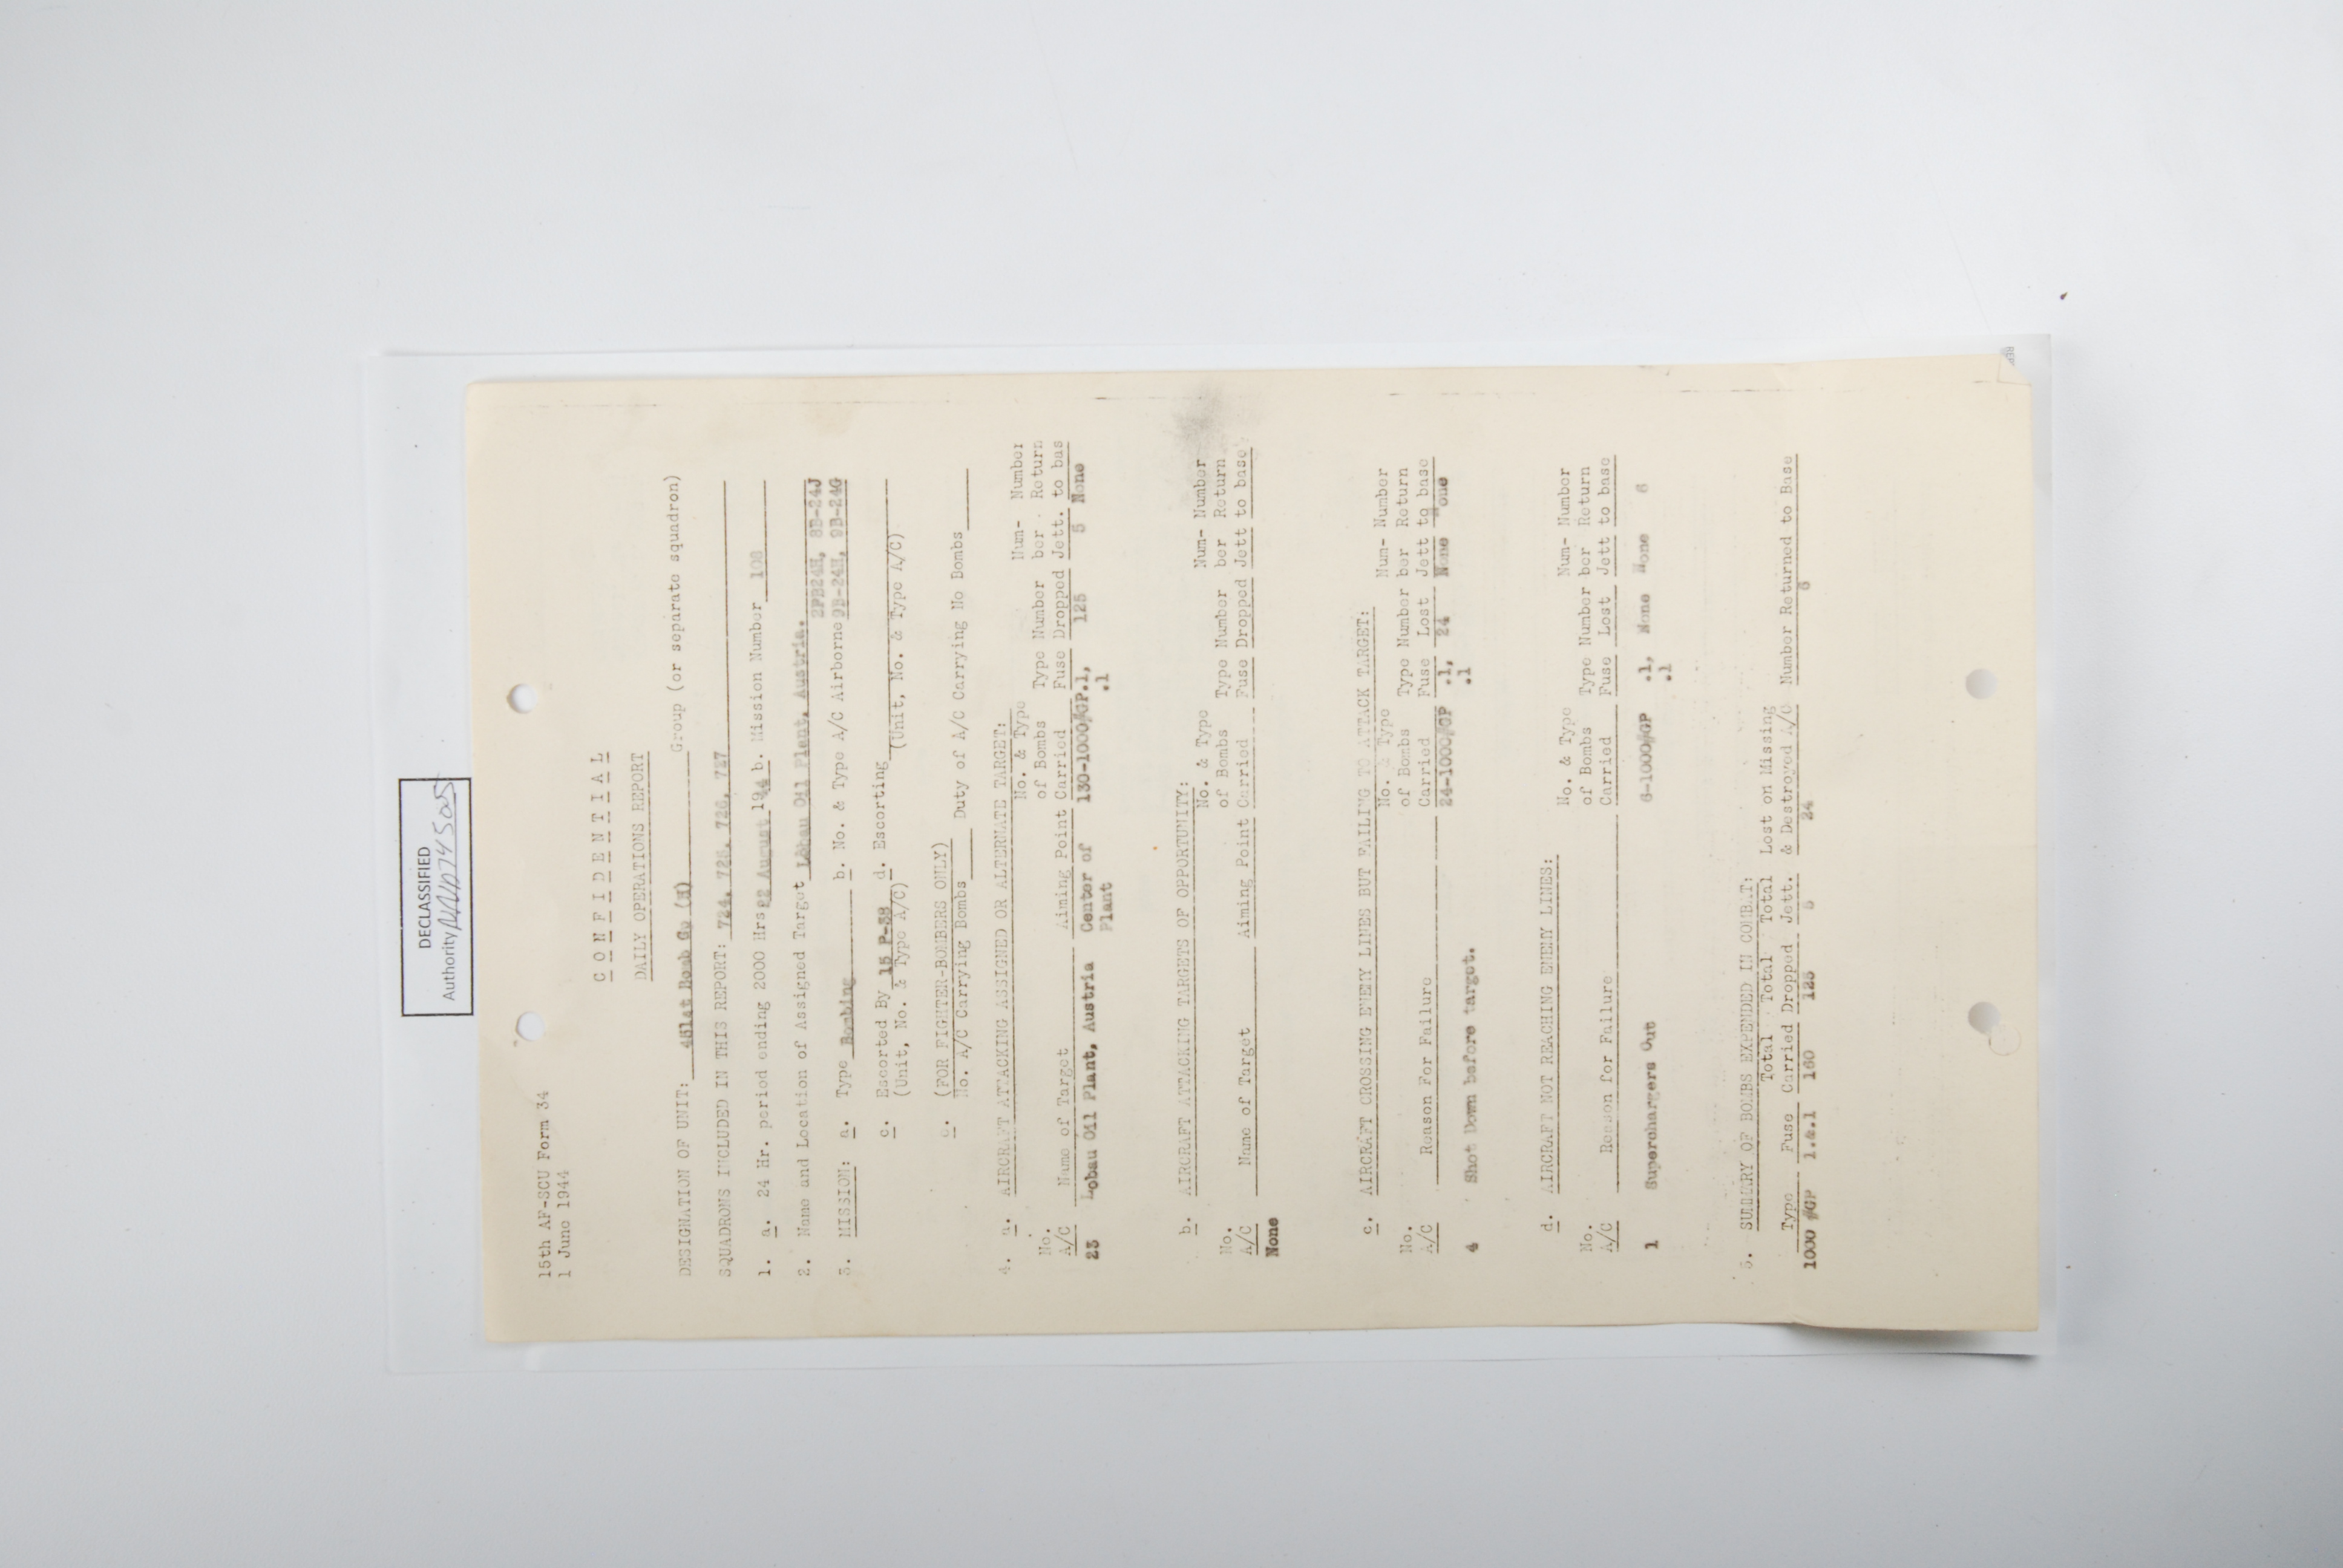 DECLASSIFIED
Authority NND745005
15th AF-SCU Form 34
1 June 1944
C O N F I D E N T I A L
DAILY OPERATIONS REPORT
DESIGNATION OF UNIT: 451st Bomb Gp (H) Group (or separate squadron)
SQUADRONS INCLUDED IN THIS REPORT: 724, 725, 726, 727
1. a. 24 Hr. period ending 2000 Hrs 22 August 1944 b. Mission Number 108
2. Name and Location of Assigned Target Lobau Oil Plant, Austria.
2PB24H, 8B-24J
3. MISSION: a. Type Bombing b. No. & Type A/C Airborne 9B-24H, 9B-24G
c. Escorted By 15 P-38 d. Escorting
(Unit, No. & Type A/C) (Unit, No. & Type A/C)
e. (FOR FIGHTER-BOMBERS ONLY)
No. A/C Carrying Bombs Duty of A/C Carrying No Bombs
4. a. AIRCRAFT ATTACKING ASSIGNED OR ALTERNATE TARGET:
No. & Type Num- Number
No. of Bombs Type Number ber Return
A/C Name of Target Aiming Point Carried Fuse Dropped Jett. to bas
23 Lobau Oil Plant, Austria Center of 130-1000#GP .1, 125 5 None
Plant .1
b. AIRCRAFT ATTACKING TARGETS OF OPPORTUNITY:
No. & Type Num- Number
No. of Bombs Type Number ber Return
A/C Name of Target Aiming Point Carried Fuse Dropped Jett to base
None
c. AIRCRAFT CROSSING ENEMY LINES BUT FAILING TO ATTACK TARGET:
No. & Type Num- Number
No. of Bombs Type Number ber Return
A/C Reason For Failure Carried Fuse Lost Jett to base
24-1000#GP .1, 24 None None
4 Shot Down before target. .1
d. AIRCRAFT NOT REACHING ENEMY LINES:
No. & Type Num- Number
No. of Bombs Type Number ber Return
A/C Reason for Failure Carried Fuse Lost Jett to base
1 Superchargers Out 6-1000#GP .1, None None 6
.1
5. SUMMARY OF BOMBS EXPENDED IN COMBAT:
Total Total Total Lost on Missing
Type Fuse Carried Dropped Jett. & Destroyed A/C Number Returned to Base
1000 #GP 1.&.1 160 125 5 24 6